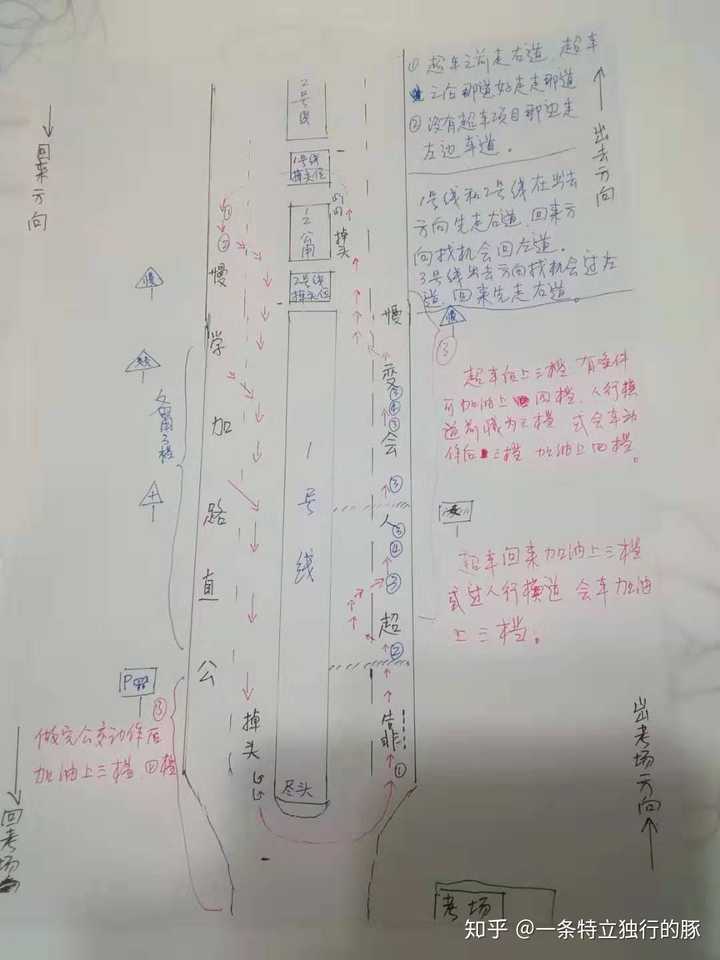 ① 超车之前走右道，超车
之后那道好走走那道
② 没有超车项目那边走
左边车道。
出去方向
1号线和2号线在出去
方向先走右道，回来方
向找机会回左道。
3号线出去方向找机会过左
道，回来先走右道。
回来方向
2号线
1号线
掉头位
掉头
2号线
掉头位
慢
慢
慢
学
加
路
直
公
掉头
1号线
尽头
变
会
人
超
①
②
③
④
③
超车后上三档 有条件
可加油上四档，人行横
加油上四档。
超车回来加油上三档
或过人行横道 会车加油
上三档。
P
③
做完公交动作后
加油上三档 四档
回考场
出考场方向
考场
知乎 @一条特立独行的豚